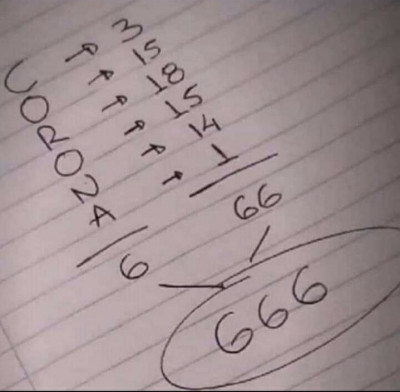 CORONA 6
3
15
18
15
14
1
66
666